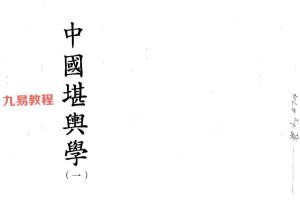 中國堪輿學
(一)
九易教程